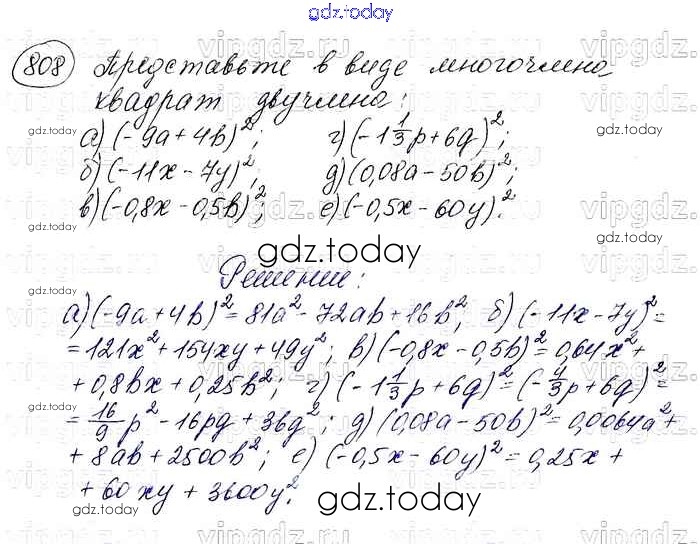 gdz.today
vipgdz.ru
808 Представьте в виде многочлена
квадрат двучлена:
а) (-9a+4b)²; г) (-1 1/3 p+6q)²;
б) (-11x-7y)²; д) (0,08a-50b)²;
в) (-0,8x-0,5b)²; е) (-0,5x-60y)².
gdz.today
Решение:
а) (-9a+4b)²=81a²-72ab+16b²; б) (-11x-7y)²=
=121x²+154xy+49y²; в) (-0,8x-0,5b)²=0,64x²+
+0,8bx+0,25b²; г) (-1 1/3 p+6q)²=(-4/3 p+6q)²=
=16/9 p²-16pq+36q²; д) (0,08a-50b)²=0,0064a²+
+8ab+2500b²; е) (-0,5x-60y)²=0,25x+
+60xy+3600y².
gdz.today